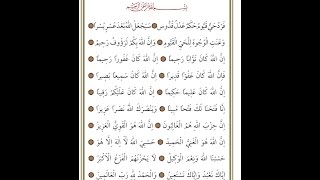 بِسْمِ اللهِ الرَّحْمٰنِ الرَّحِيمِ
فَرْدٌ حَيٌّ قَيُّومٌ حَكَمٌ عَدْلٌ قُدُّوسٌ سَيَجْعَلُ اللهُ بَعْدَ عُسْرٍ يُسْراً
وَعَنَتِ الْوُجُوهُ لِلْحَيِّ الْقَيُّومِ وَاِنَّ اللهَ بِكُمْ لَرَؤُوفٌ رَحِيمٌ
اِنَّ اللهَ كَانَ تَوَّاباً رَحِيماً اِنَّ اللهَ كَانَ غَفُوراً رَحِيماً
فَاِنَّ اللهَ كَانَ عَفُوّاً قَدِيراً اِنَّ اللهَ كَانَ سَمِيعاً بَصِيراً
اِنَّ اللهَ كَانَ عَلِيماً حَكِيماً اِنَّ اللهَ كَانَ عَلَيْكُمْ رَقِيباً
اِنَّا فَتَحْنَا لَكَ فَتْحاً مُبِيناً وَيَنْصُرَكَ اللهُ نَصْراً عَزِيزاً
اِنَّ حِزْبَ اللهِ هُمُ الْغَالِبُونَ اِنَّ اللهَ هُوَ الْقَوِيُّ الْعَزِيزُ
اِنَّ اللهَ هُوَ الْغَنِيُّ الْحَمِيدُ حَسْبِيَ اللهُ لَا اِلٰهَ اِلَّا هُوَ
حَسْبُنَا اللهُ وَنِعْمَ الْوَكِيلُ لَا يَحْزُنُهُمُ الْفَزَعُ الْاَكْبَرُ
اِيَّاكَ نَعْبُدُ وَاِيَّاكَ نَسْتَعِينُ وَالْحَمْدُ لِلّٰهِ رَبِّ الْعَالَمِينَ